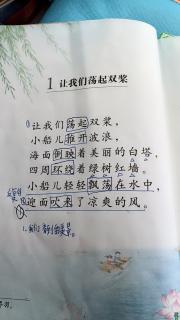 1 让我们荡起双桨
①让我们荡起双桨，
小船儿推开波浪，
海面倒映着美丽的白塔，
四周环绕着绿树红墙。
小船儿轻轻飘荡在水中，
迎面吹来了凉爽的风。